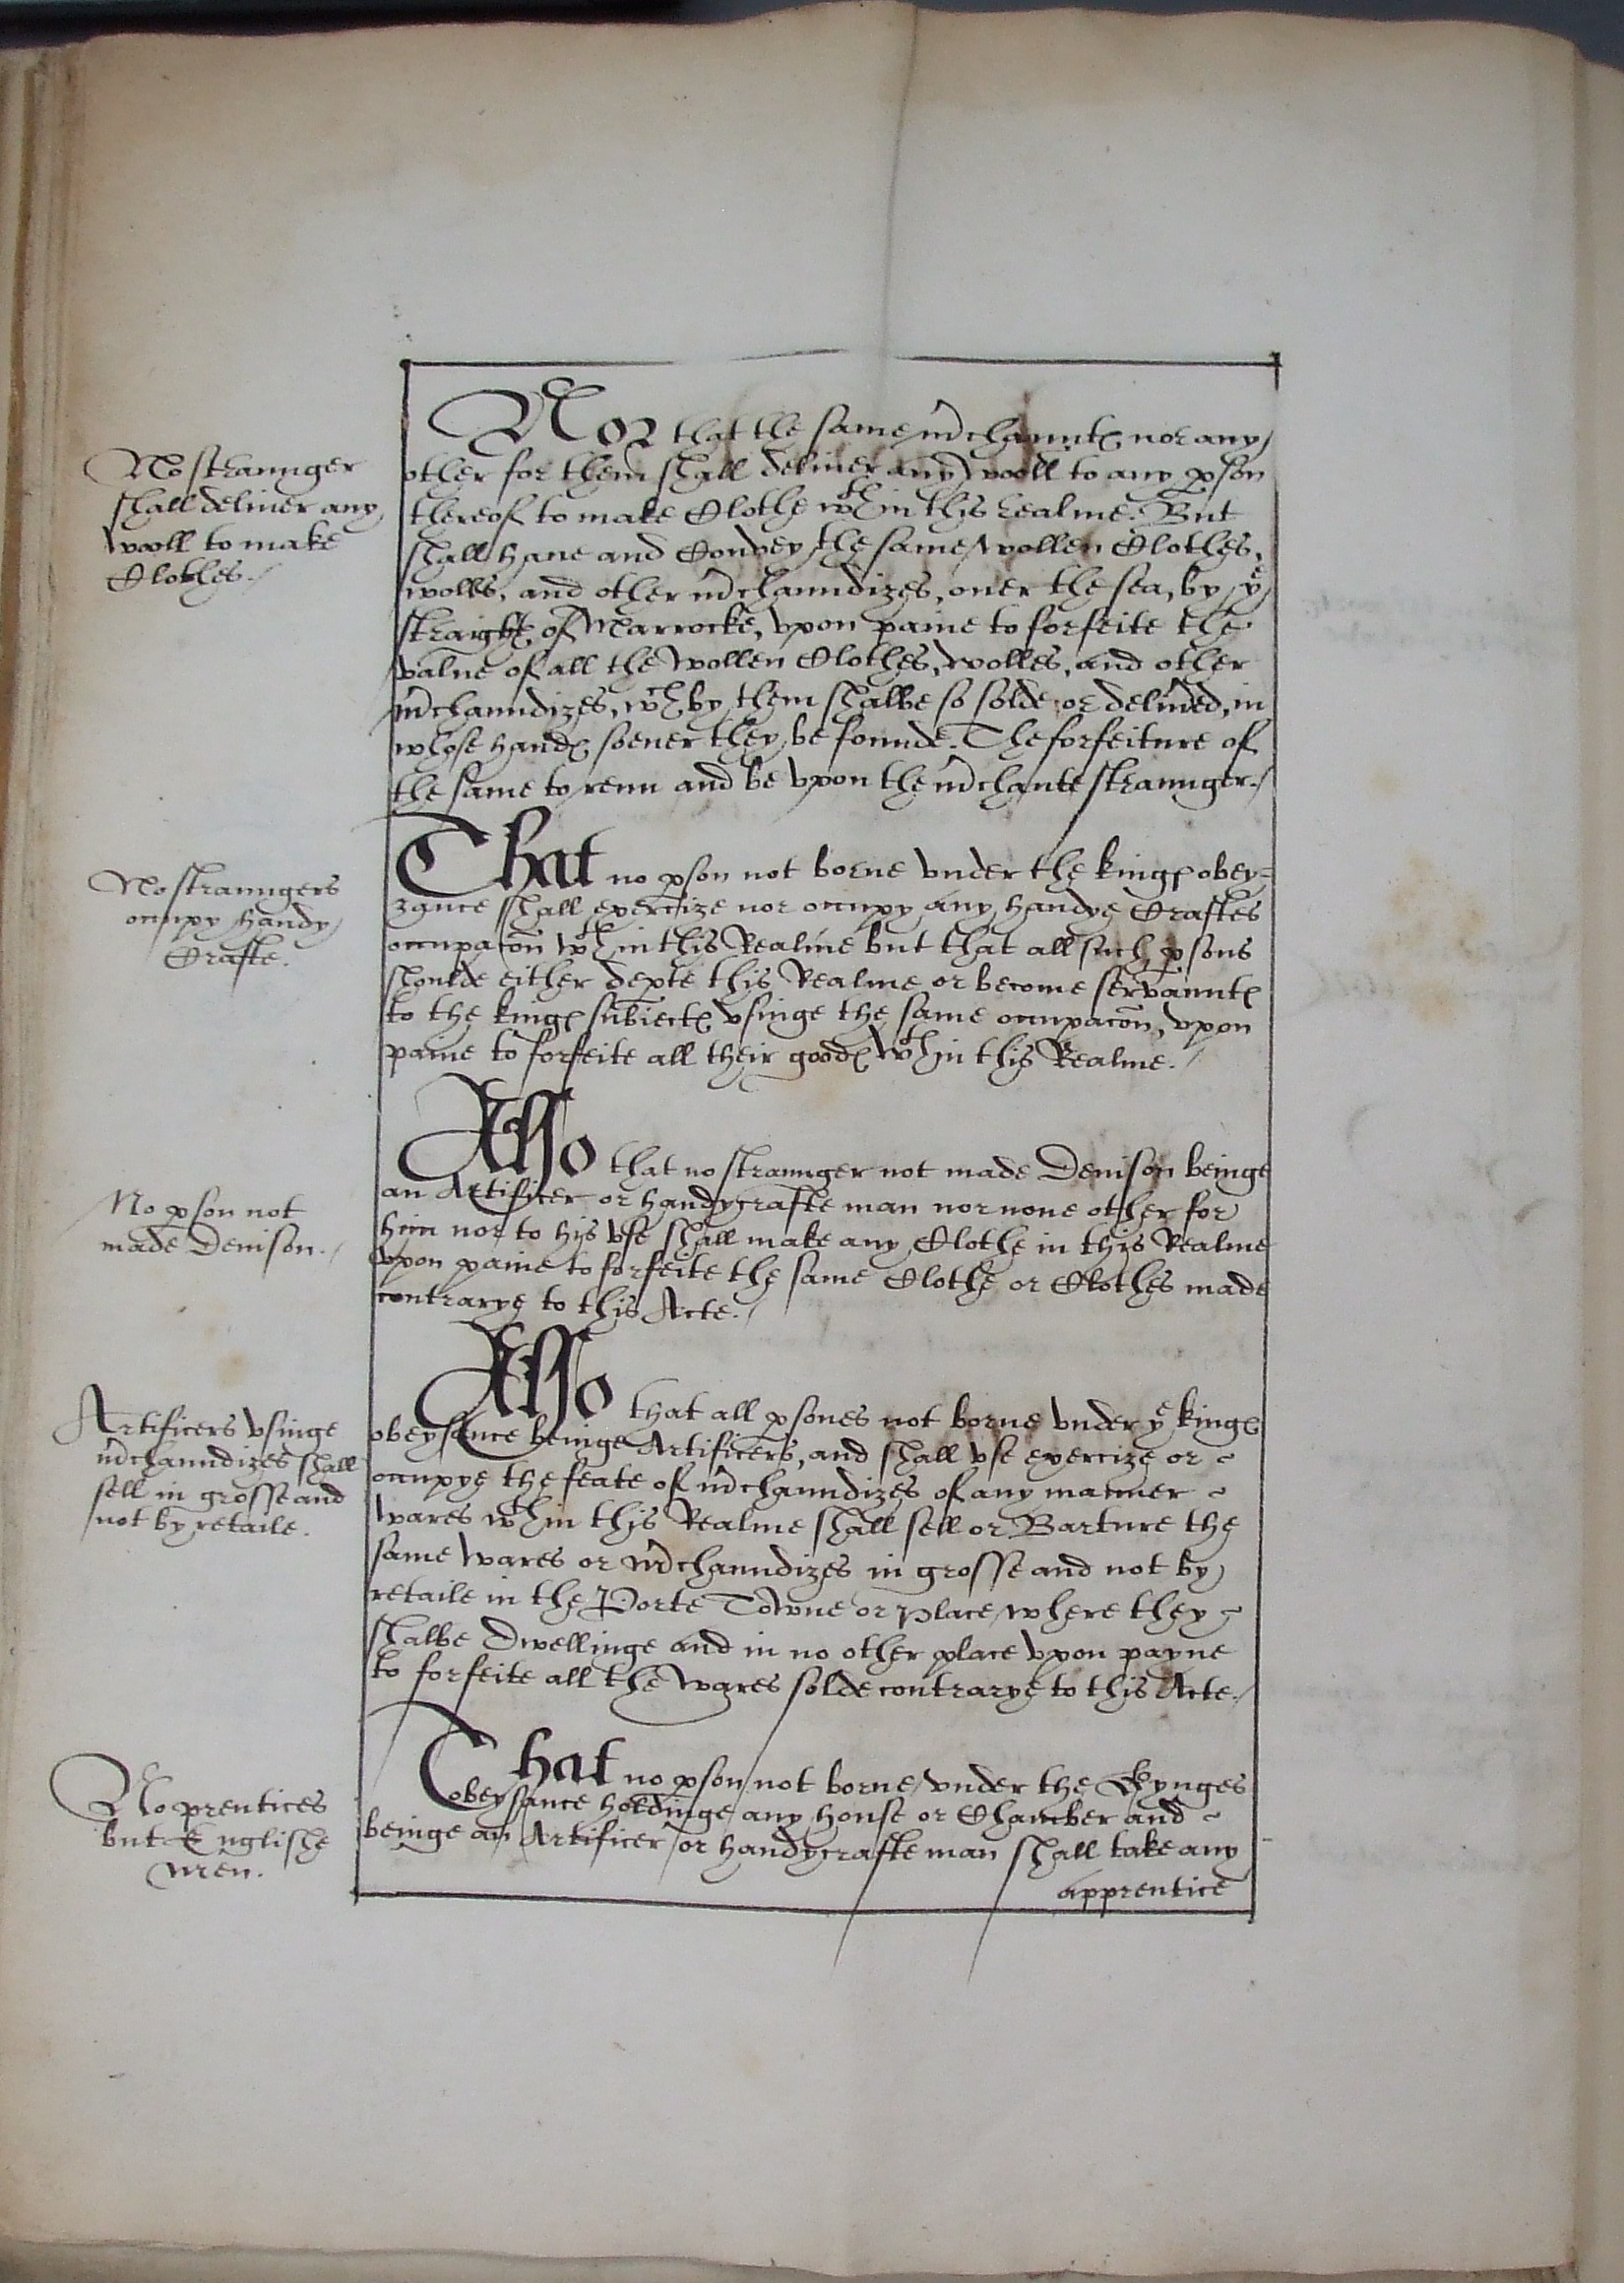 No straunger
shall deliver any
woll to make
Clothes./
Nor that the same m̃chauntꝭ nor any
other for them shall deliver any woll to any ꝑson
thereof to make Clothe wᵗʰin this realme. But
shall have and Convey the same wollen Clothes,
wolls, and other m̃chaundizes, over the sea, by yᵉ
straightꝭ of Marrocke, vpon paine to forfeite the
value of all the wollen Clothes, wolles, and other
m̃chaundizes, wᶜʰ by them shalbe so solde or deliũed, in
whose handꝭ soever they be founde. The forfeiture of
the same to renn and be vpon the m̃chante straunger./
No straungers
occupy handy
Crafte.
That no ꝑson not borne vnder the kingꝭ obey=
zance shall exercize nor occupy any handye Craftes
occupac̃on wᵗʰin this Realme but that all such ꝑsons
shoulde either deꝑte this Realme or become servauntꝭ
to the kingꝭ subiectꝭ vsinge the same occupac̃on, vpon
paine to forfeite all their goodꝭ wᵗʰin this Realme./
No ꝑson not
made Denison./
Also that no straunger not made Denison beinge
an Artificer or handycrafte man nor none other for
him nor to his vse shall make any Clothe in this Realme
vpon paine to forfeite the same Clothe or Clothes made
contrarye to this Acte./
Artificers vsinge
m̃chaundizes shall
sell in grosse and
not by retaile.
Also that all ꝑsones not borne vnder yᵉ kingꝭ
obeysance beinge Artificers, and shall vse exercize or
occupye the feate of m̃chaundizes of any manner
wares wᵗʰin this Realme shall sell or Barture the
same wares or m̃chaundizes in grosse and not by
retaile in the Porte Towne or place where they
shalbe Dwellinge and in no other place vpon payne
to forfeite all the wares solde contrarye to this Acte./
No prentices
but Englishe
men.
That no ꝑson not borne vnder the Kynges
obeysance holdinge any house or Chamber and
beinge an Artificer or handycrafte man shall take any
apprentice